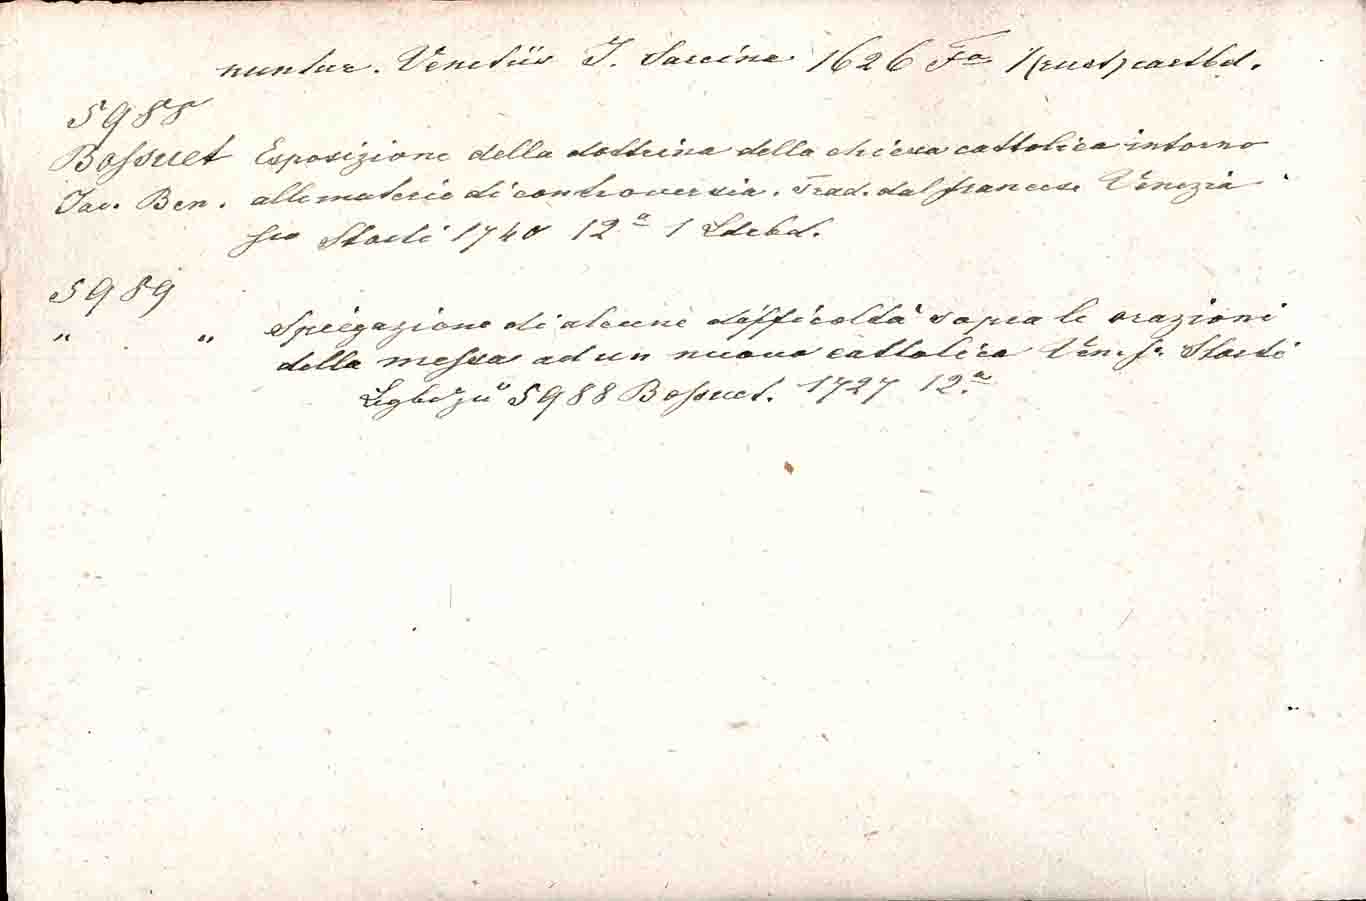 nuntur. Venetiis J. Sarcina 1626 Fa. 1 (rust) cartbd.
5988
Bossuet Esposizione della dottrina della chiesa cattolica intorno
Jac. Ben. alle materie di controversia. Trad. dal francese Venezia
fco Storti 1740 12a 1 Ldrbd.
5989
" " Spiegazione di alcune difficoltà sopra le orazioni
della messa ad un nuovo cattolico Ven. fo Storti
5988 Bossuet. 1727 12.a